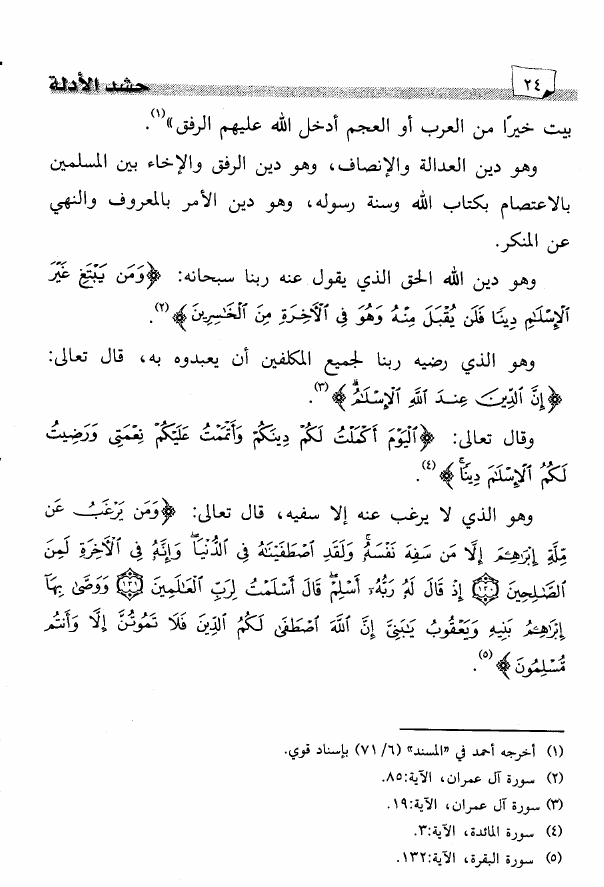 ٢٤
حشد الأدلة
بيت خيرًا من العرب أو العجم أدخل الله عليهم الرفق»(١).
وهو دين العدالة والإنصاف، وهو دين الرفق والإخاء بين المسلمين
بالاعتصام بكتاب الله وسنة رسوله، وهو دين الأمر بالمعروف والنهي
عن المنكر.
وهو دين الله الحق الذي يقول عنه ربنا سبحانه: ﴿وَمَن يَبْتَغِ غَيْرَ
الْإِسْلَامِ دِينًا فَلَن يُقْبَلَ مِنْهُ وَهُوَ فِي الْآخِرَةِ مِنَ الْخَاسِرِينَ﴾(٢).
وهو الذي رضيه ربنا لجميع المكلفين أن يعبدوه به، قال تعالى:
﴿إِنَّ الدِّينَ عِندَ اللَّهِ الْإِسْلَامُ﴾(٣).
وقال تعالى: ﴿الْيَوْمَ أَكْمَلْتُ لَكُمْ دِينَكُمْ وَأَتْمَمْتُ عَلَيْكُمْ نِعْمَتِي وَرَضِيتُ
لَكُمُ الْإِسْلَامَ دِينًا﴾(٤).
وهو الذي لا يرغب عنه إلا سفيه، قال تعالى: ﴿وَمَن يَرْغَبُ عَن
مِّلَّةِ إِبْرَاهِيمَ إِلَّا مَن سَفِهَ نَفْسَهُ وَلَقَدِ اصْطَفَيْنَاهُ فِي الدُّنْيَا وَإِنَّهُ فِي الْآخِرَةِ لَمِنَ
الصَّالِحِينَ ١٣٠ إِذْ قَالَ لَهُ رَبُّهُ أَسْلِمْ قَالَ أَسْلَمْتُ لِرَبِّ الْعَالَمِينَ ١٣١ وَوَصَّىٰ بِهَا
إِبْرَاهِيمُ بَنِيهِ وَيَعْقُوبُ يَا بَنِيَّ إِنَّ اللَّهَ اصْطَفَىٰ لَكُمُ الدِّينَ فَلَا تَمُوتُنَّ إِلَّا وَأَنتُم
مُّسْلِمُونَ﴾(٥).
(١) أخرجه أحمد في «المسند» (٦/ ٧١) بإسناد قوي.
(٢) سورة آل عمران، الآية:٨٥.
(٣) سورة آل عمران، الآية:١٩.
(٤) سورة المائدة، الآية:٣.
(٥) سورة البقرة، الآية:١٣٢.